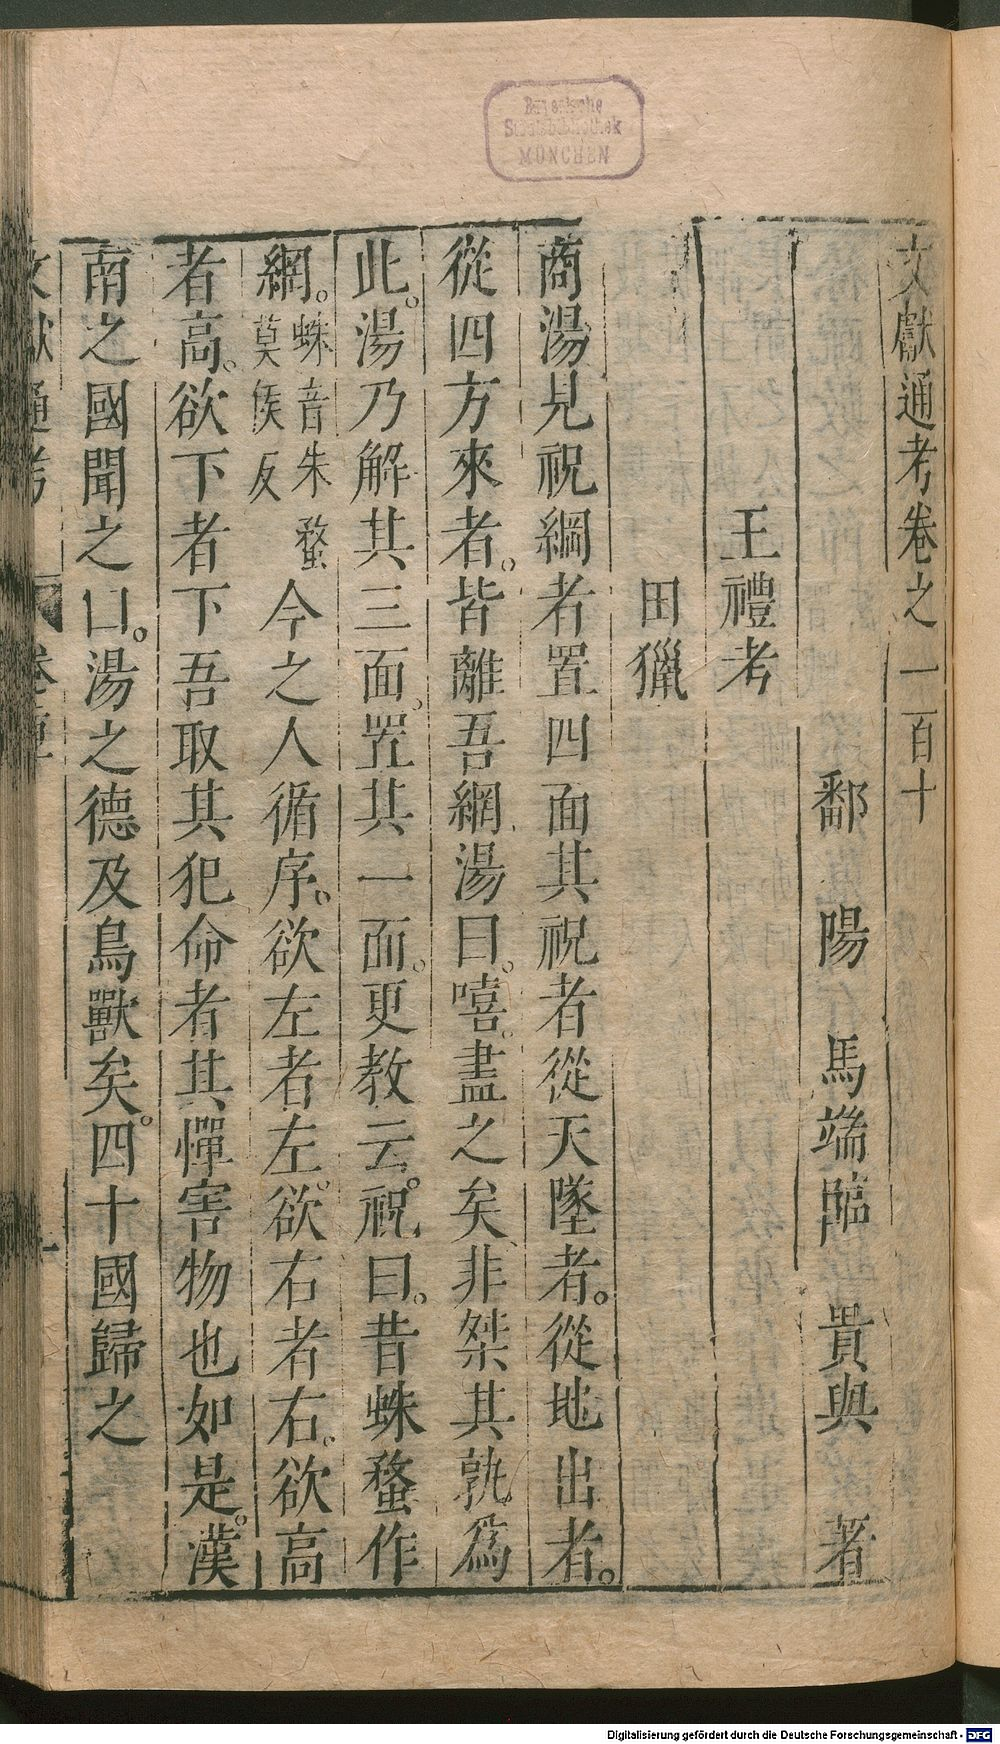 Bayerische
Staatsbibliothek
MÜNCHEN
文獻通考卷之一百十
鄱陽馬端臨貴與著
王禮考
田獵
商湯見祝網者置四面其祝者從天墜者。從地出者。
從四方來者。皆離吾網湯曰。嘻。盡之矣非桀其孰為
此。湯乃解其三面。置其一面。更教云。祝曰。昔蛛蝥作
網。蛛音朱蝥莫侯反今之人循序。欲左者左。欲右者右。欲高
者高。欲下者下吾取其犯命者其憚害物也如是。漢
南之國聞之曰。湯之德及鳥獸矣。四十國歸之
文獻通考
卷
一
Digitalisierung gefördert durch die Deutsche Forschungsgemeinschaft - DFG